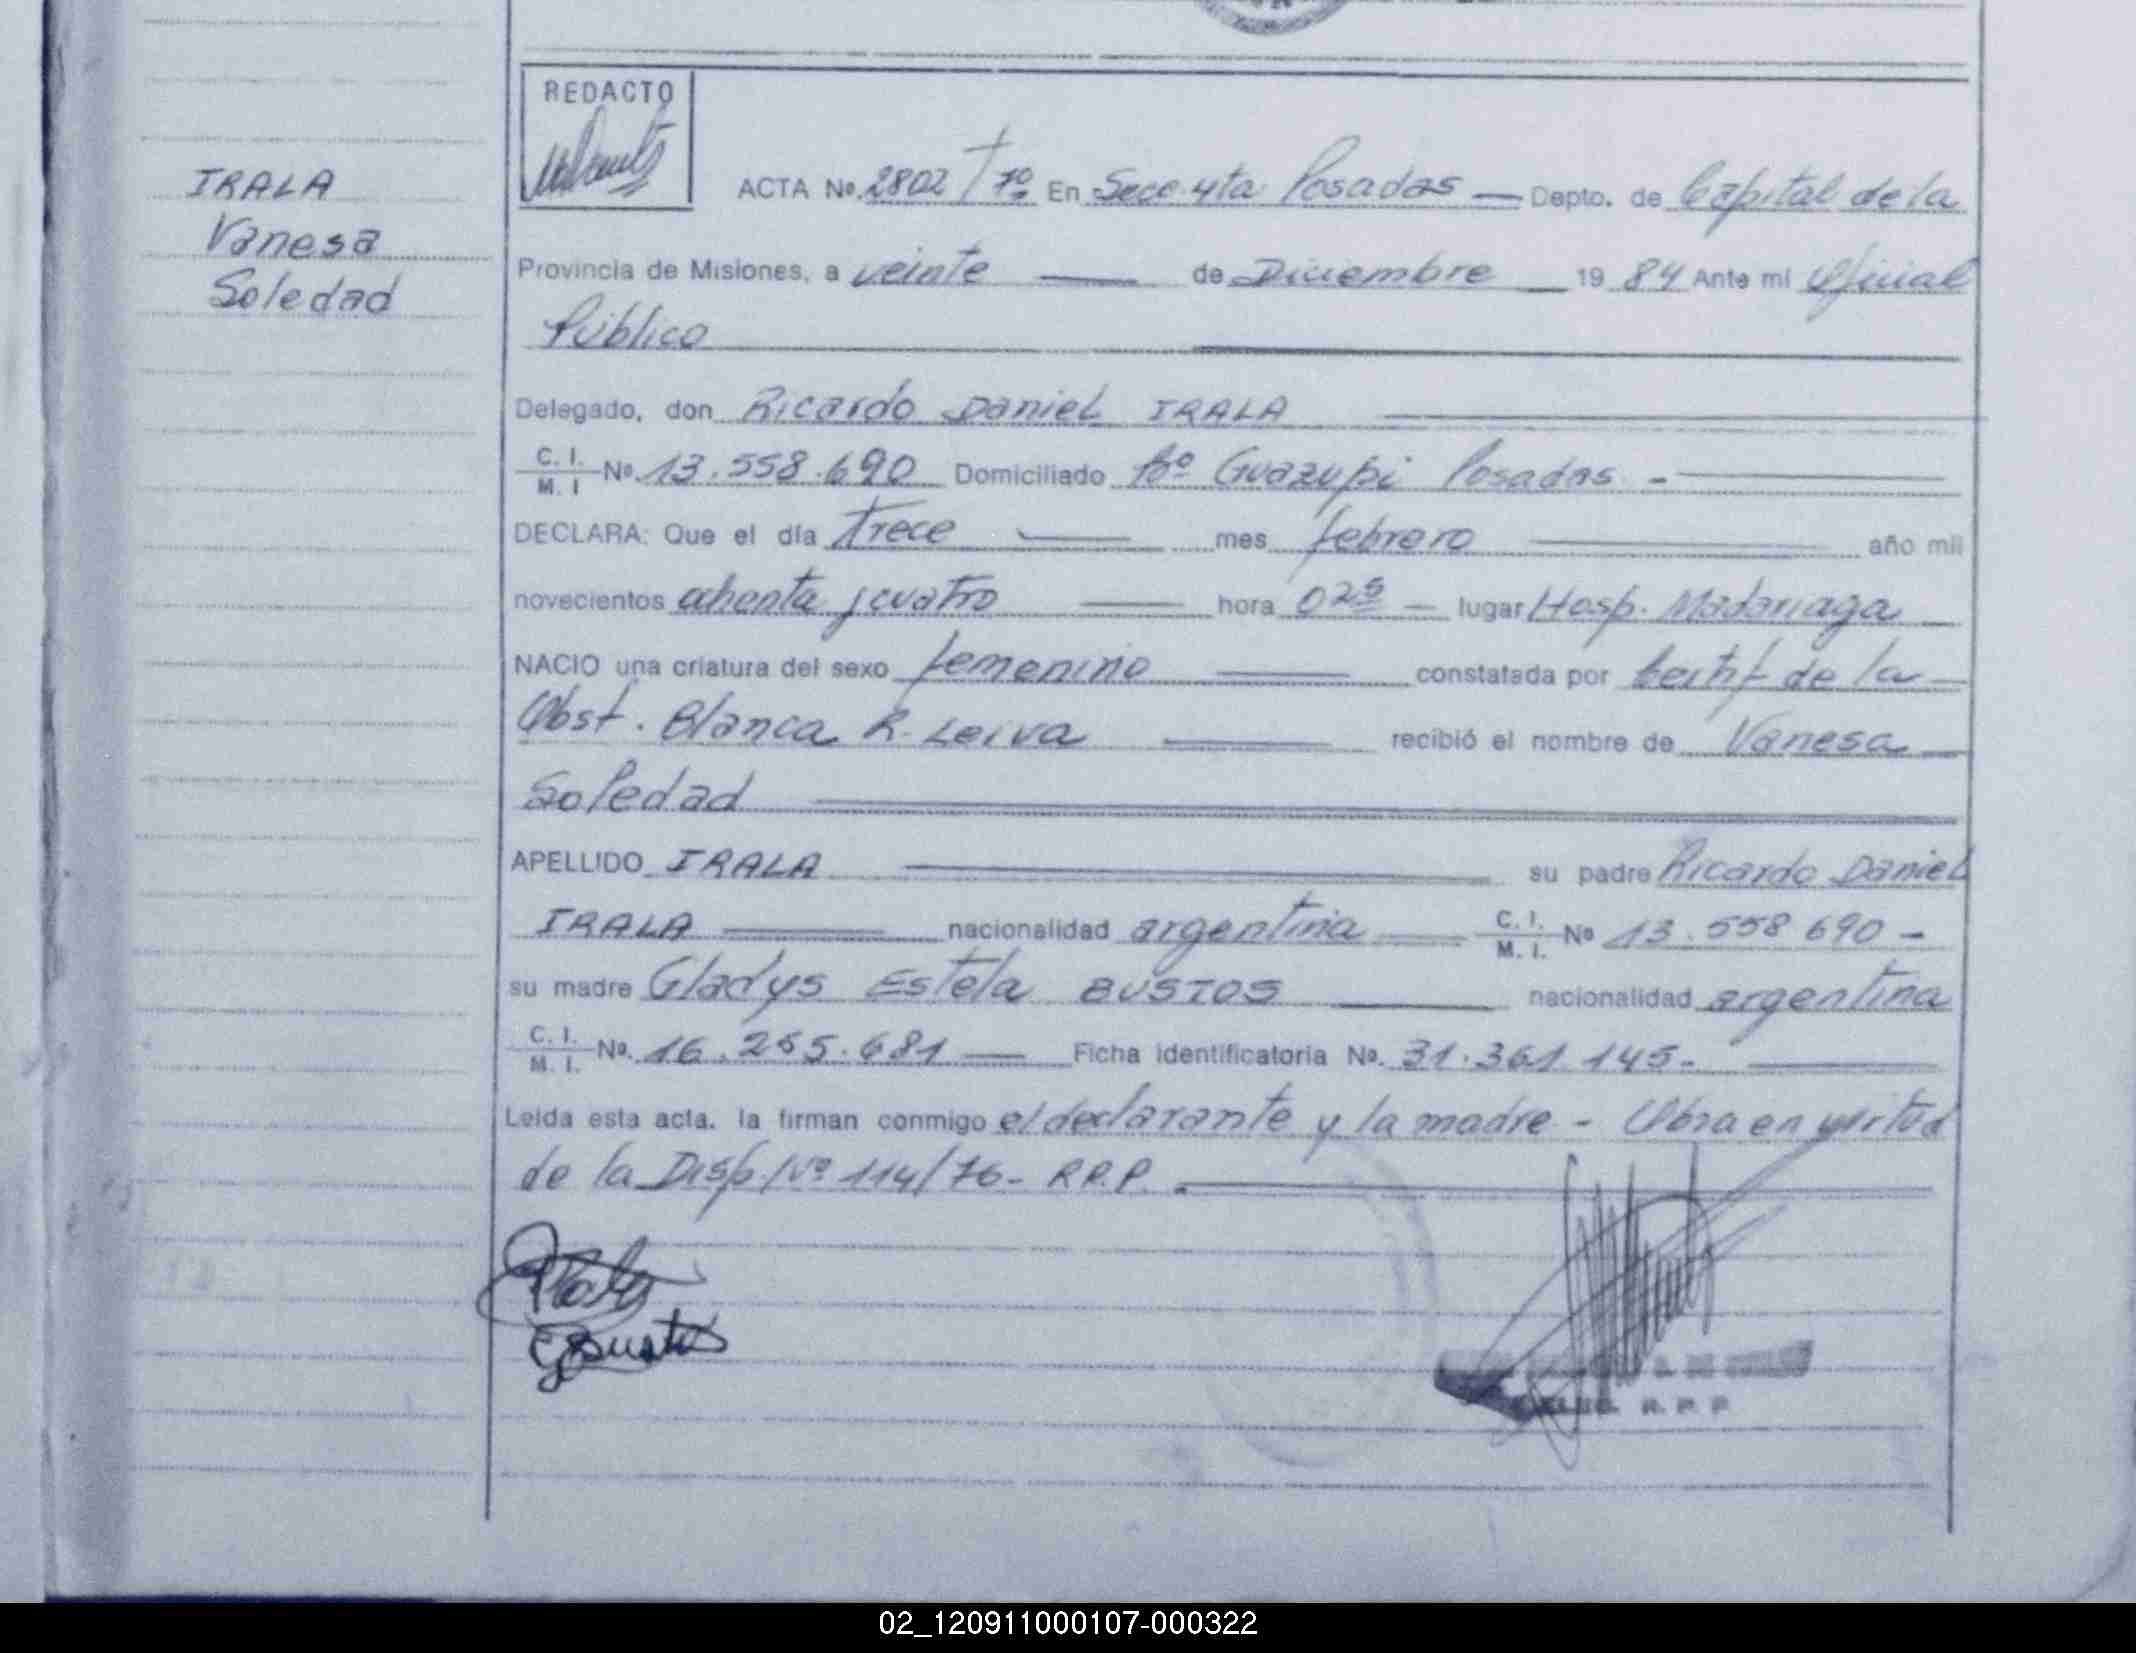 REDACTO
IRALA
Vanesa
Soledad
ACTA No. 2802 / 7º En Secc. 4ta Posadas — Depto. de Capital de la
Provincia de Misiones, a veinte — de Diciembre — 19 84 Ante mi Oficial
Público
Delegado, don Ricardo Daniel IRALA
C. I. M. I Nº 13.558.690 Domiciliado Bº Guazupi Posadas -
DECLARA: Que el día trece — mes febrero — año mil
novecientos ochenta y cuatro — hora 02 — lugar Hosp. Madariaga
NACIO una criatura del sexo femenino — constatada por Certif de la
Obst. Blanca R. Leiva — recibió el nombre de Vanesa
Soledad
APELLIDO IRALA — su padre Ricardo Daniel
IRALA — nacionalidad argentina — C. I. M. I. Nº 13.558690 -
su madre Gladys Estela BUSTOS — nacionalidad argentina
C. I. M. I. Nº. 16.255.681 — Ficha identificatoria Nº. 31.361.145-
Leida esta acta, la firman conmigo el declarante y la madre - Obra en virtud
de la Disp. Nº 114/76- R.P.P.
R. P. P.
02_120911000107-000322